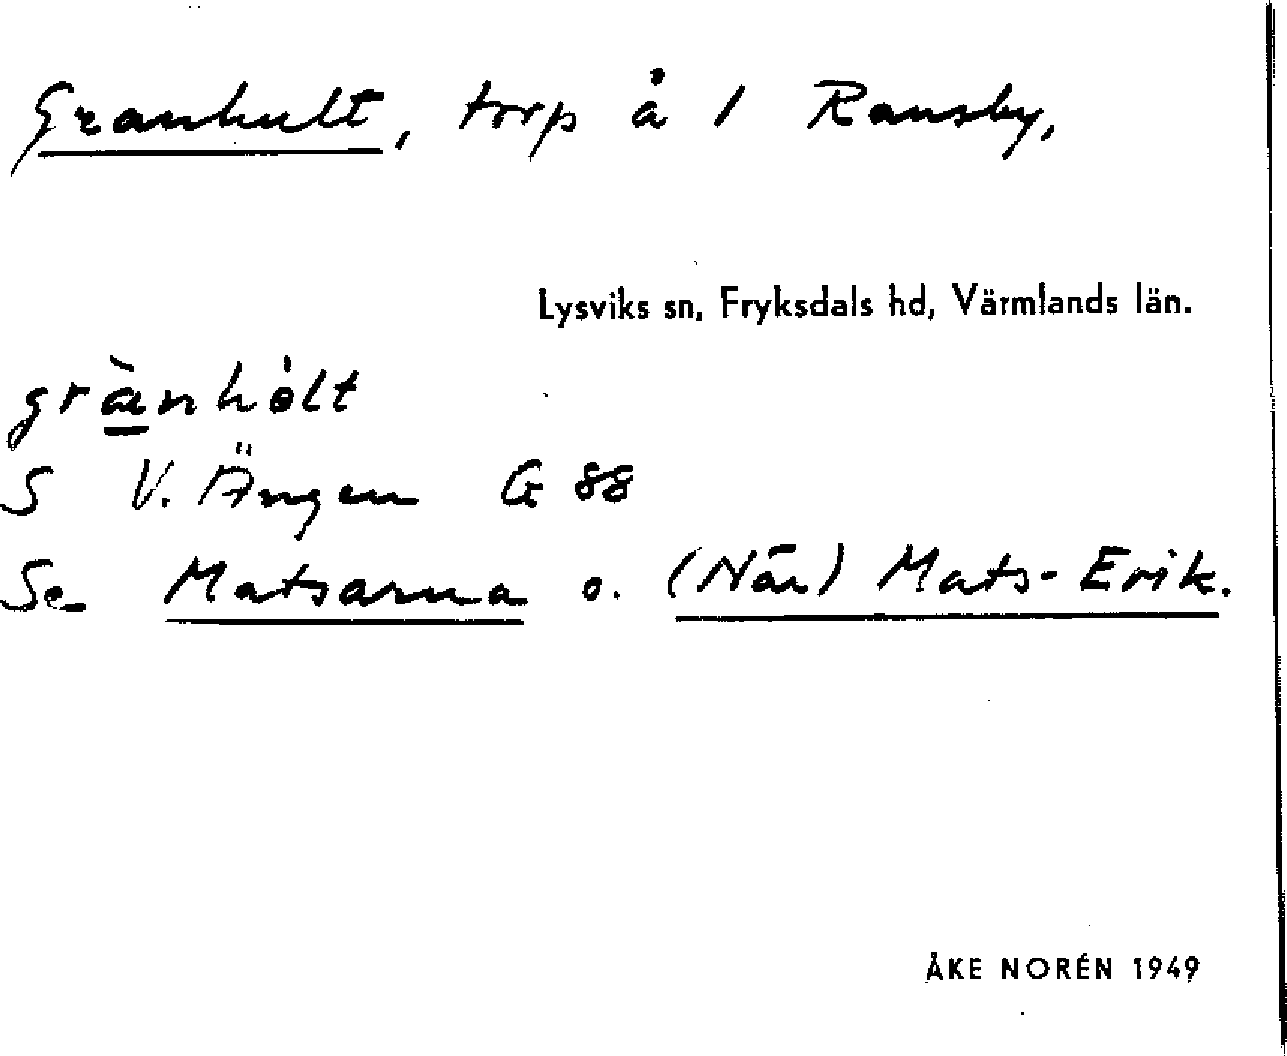 Granhult, torp å 1 Ransby,
Lysviks sn, Fryksdals hd, Värmlands län.
grànhòlt
S V. Ängen G 88
Se Matsarna o. (När) Mats-Erik.
ÅKE NORÉN 1949